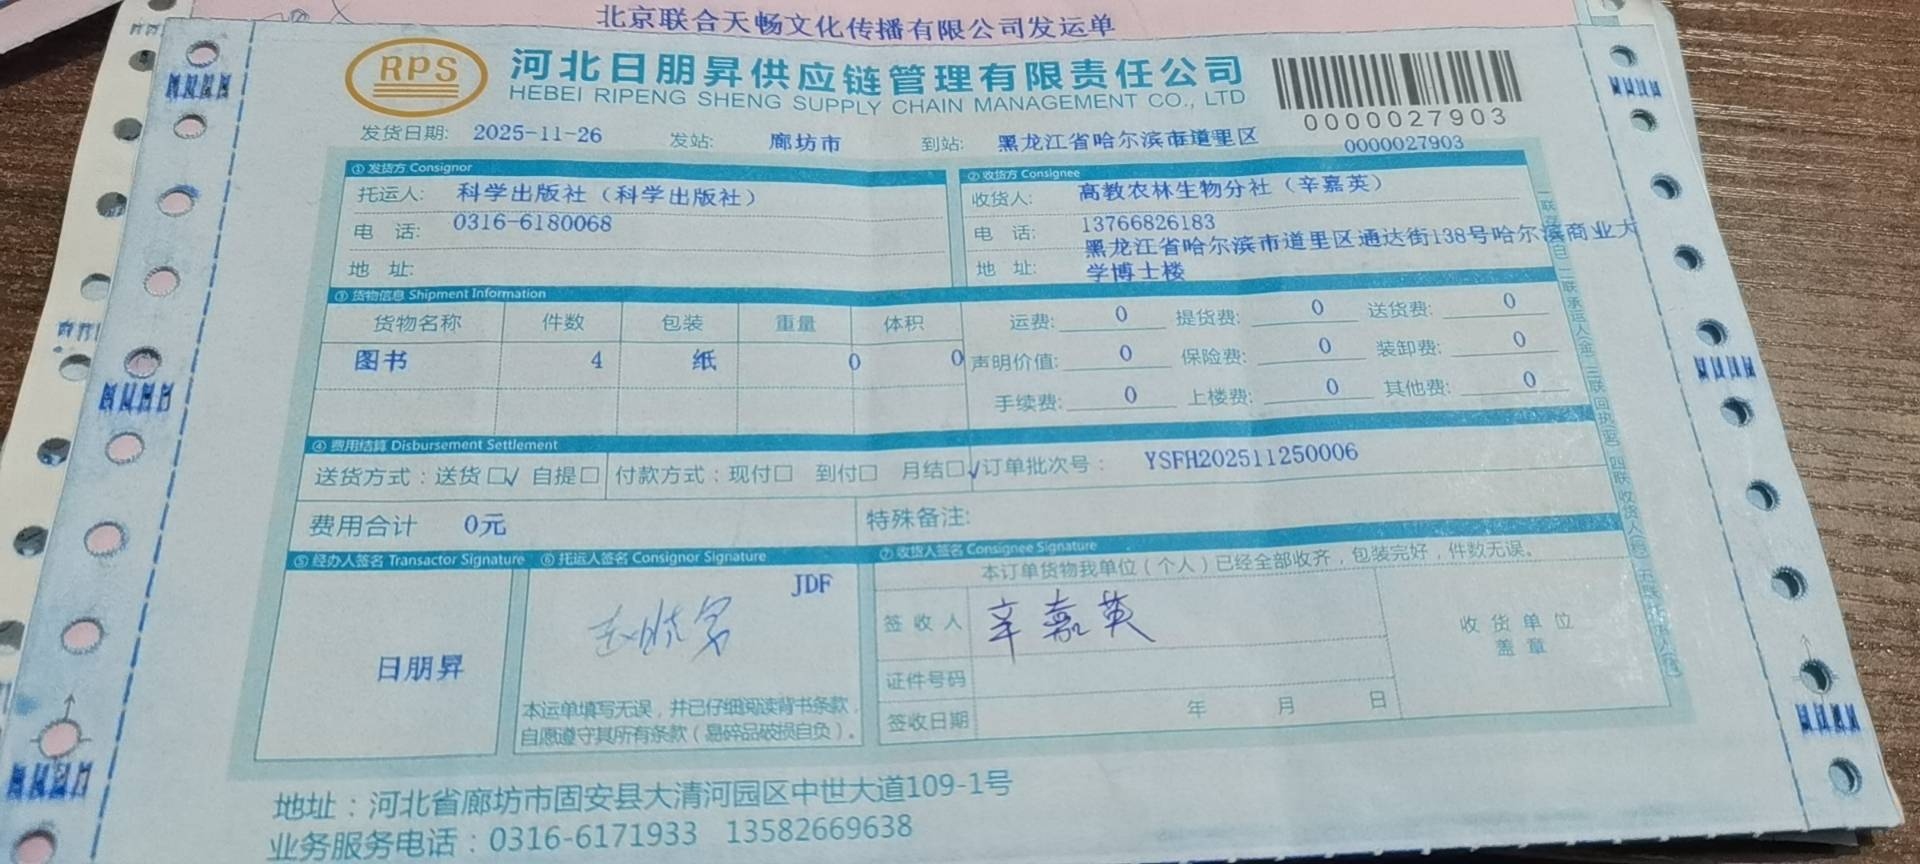 北京联合天畅文化传播有限公司发运单
RPS
河北日朋昇供应链管理有限责任公司
HEBEI RIPENG SHENG SUPPLY CHAIN MANAGEMENT CO., LTD
0000027903
发货日期: 2025-11-26 发站: 廊坊市 到站: 黑龙江省哈尔滨市道里区 0000027903
①发货方 Consignor ②收货方 Consignee
托运人: 科学出版社（科学出版社） 收货人: 高教农林生物分社（辛嘉英）
电 话: 0316-6180068 电 话: 13766826183
地 址: 地 址: 黑龙江省哈尔滨市道里区通达街138号哈尔滨商业大
学博士楼
③货物信息 Shipment Information
货物名称 件数 包装 重量 体积 运费: 0 提货费: 0 送货费: 0
图书 4 纸 0 0 声明价值: 0 保险费: 0 装卸费: 0
手续费: 0 上楼费: 0 其他费: 0
④费用结算 Disbursement Settlement
送货方式：送货□√ 自提□ 付款方式：现付□ 到付□ 月结□√ 订单批次号： YSFH202511250006
费用合计 0元 特殊备注:
⑤经办人签名 Transactor Signature ⑥托运人签名 Consignor Signature ⑦收货人签名 Consignee Signature
JDF 本订单货物我单位（个人）已经全部收齐，包装完好，件数无误。
日朋昇 签收人 辛嘉英 收货单位
盖章
证件号码
本运单填写无误，并已仔细阅读背书条款，
自愿遵守其所有条款（易碎品破损自负）。 签收日期 年 月 日
地址：河北省廊坊市固安县大清河园区中世大道109-1号
业务服务电话：0316-6171933 13582669638